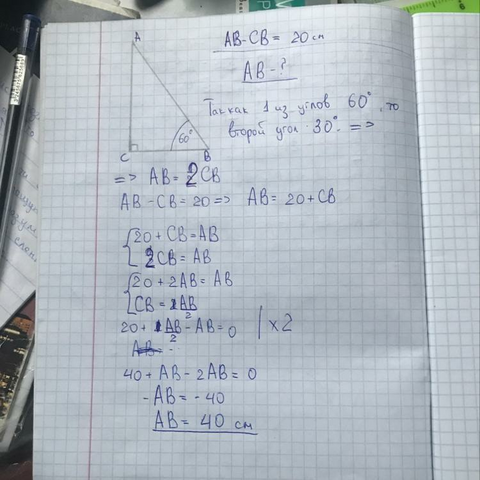 A
C
B
60°
AB-CB = 20 см
AB - ?
Так как 1 из углов 60°, то
второй угол 30°. =>
=> AB = 2CB
AB - CB = 20 => AB = 20 + CB
20 + CB = AB
2CB = AB
20 + 2AB = AB
CB = 1AB
2
20 + 1AB - AB = 0 | x2
2
AB
40 + AB - 2AB = 0
- AB = - 40
AB = 40 см